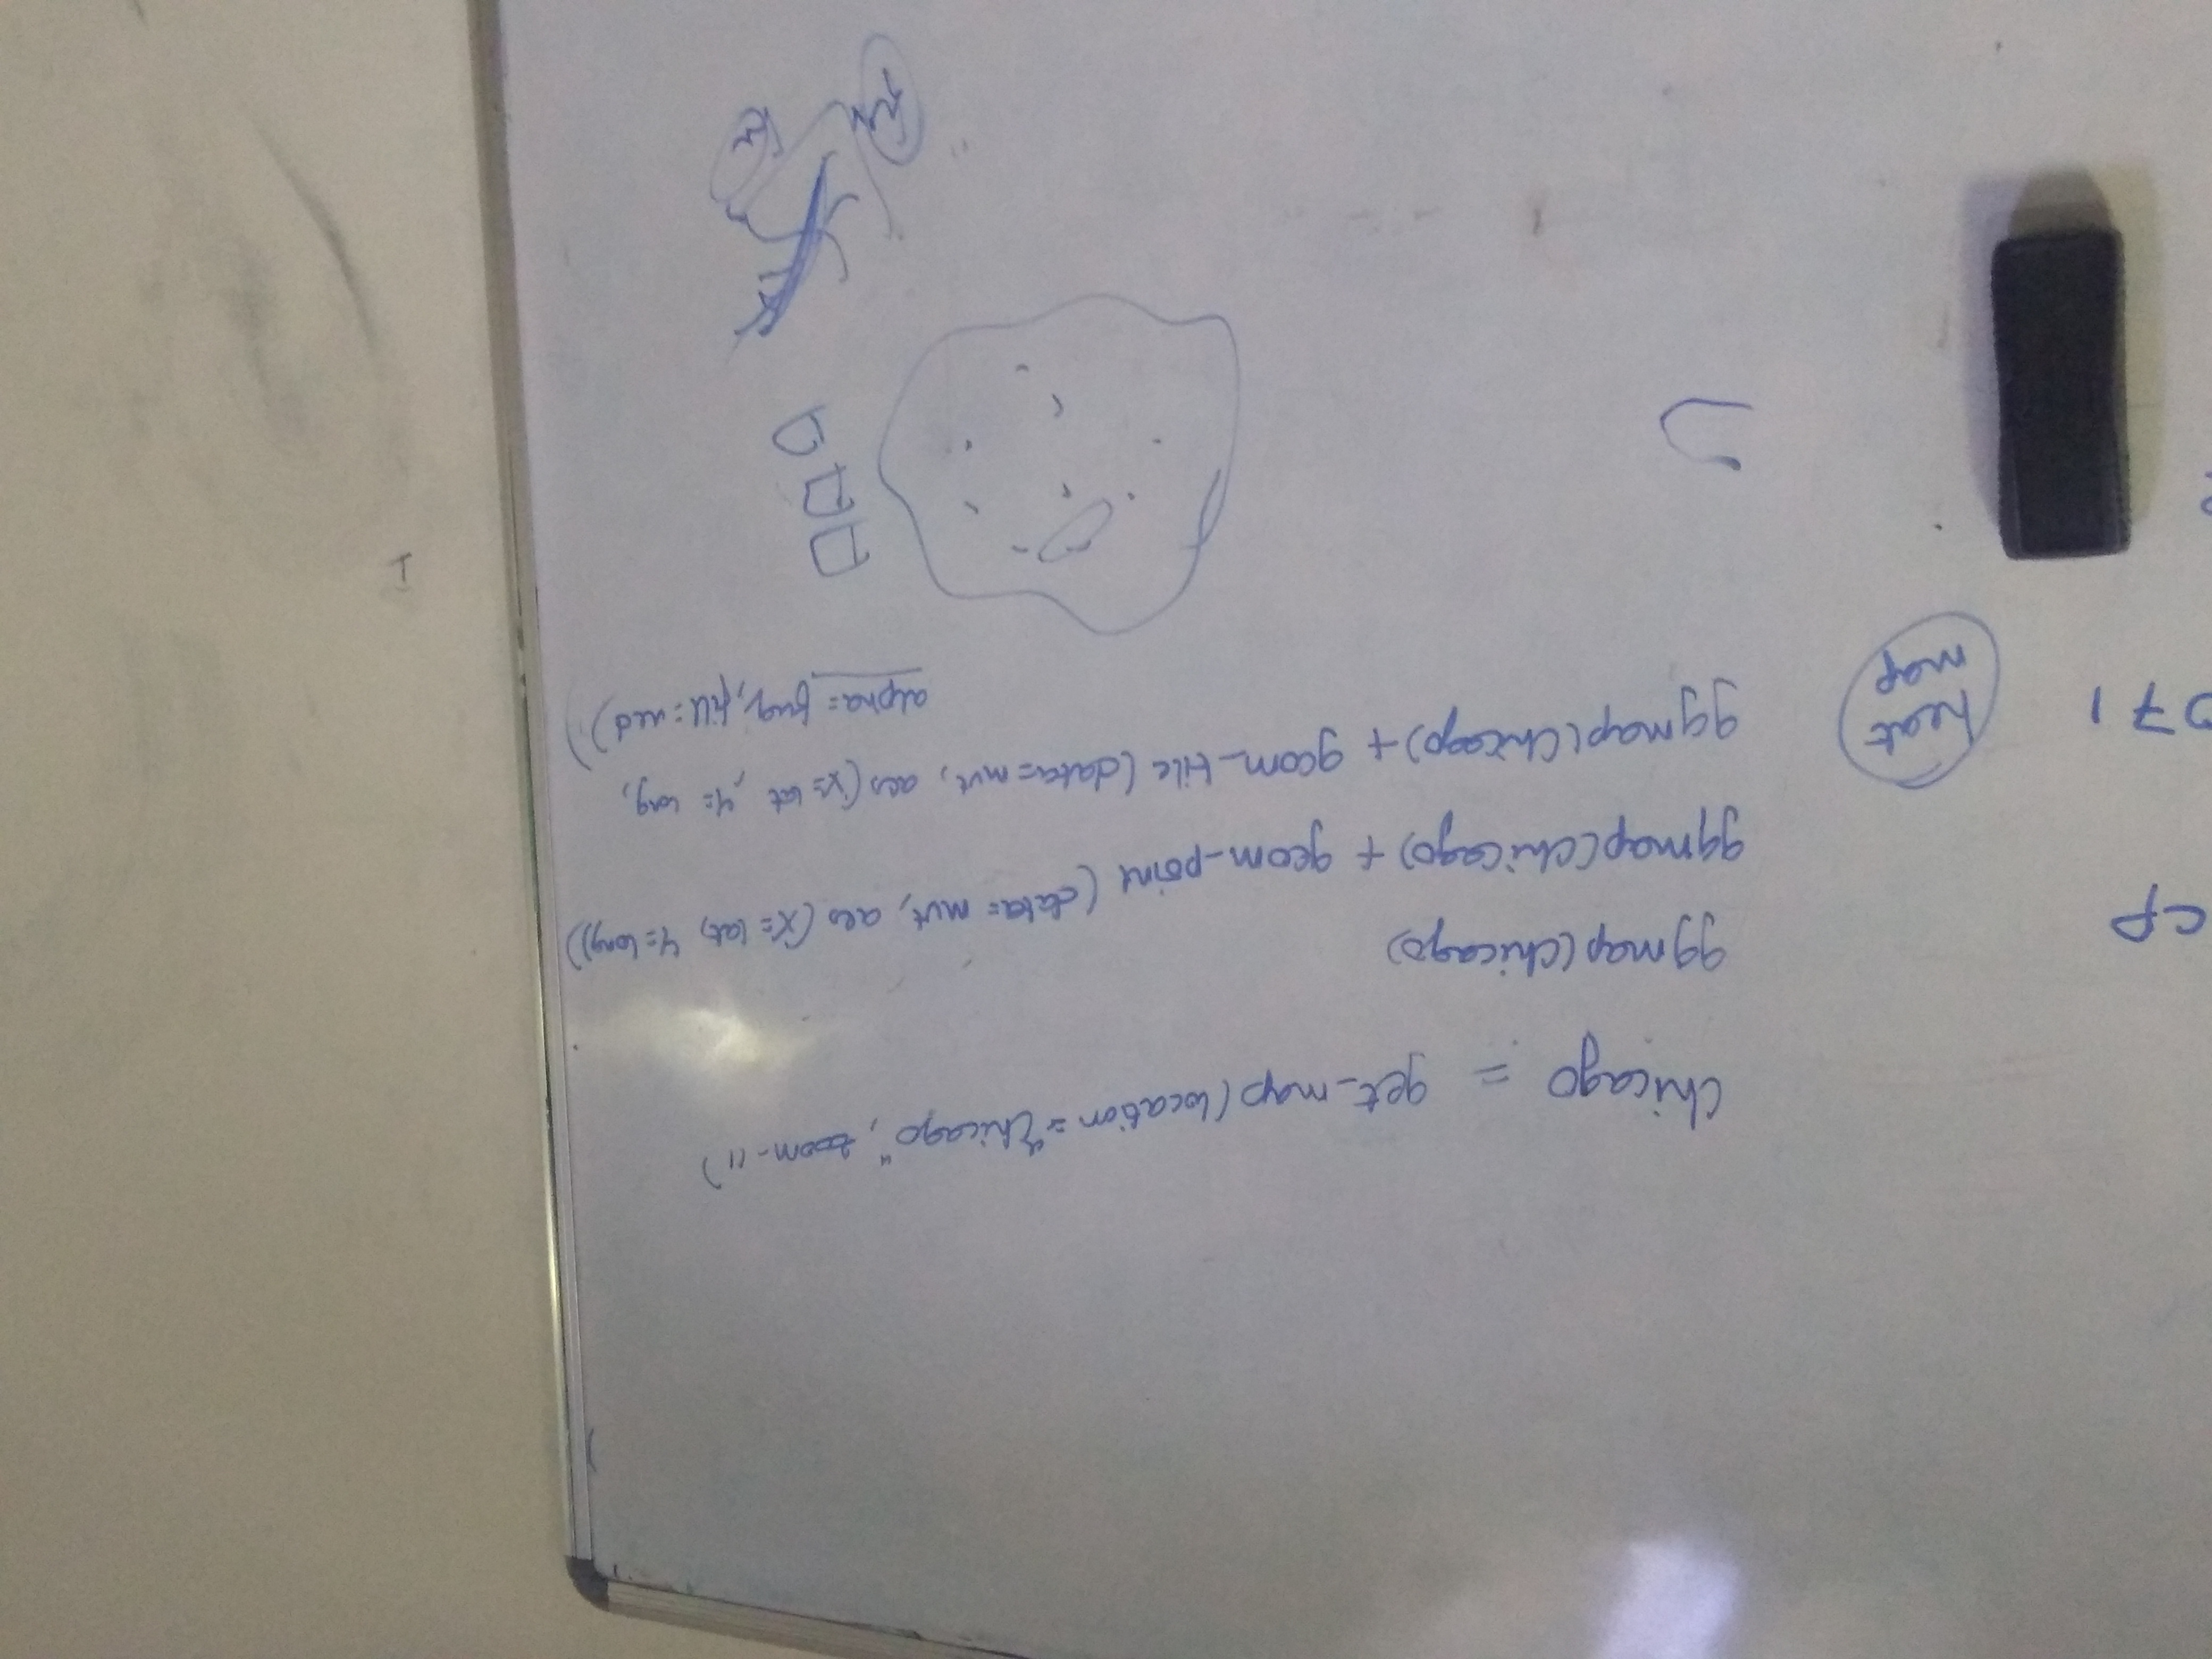 Chicago = get_map(location="Chicago", zoom-11)
ggmap(Chicago)
cp
ggmap(Chicago) + geom_point (data= mvt, aes (x= lat, y= long))
071
heat
map
ggmap(Chicago) + geom_tile (data=mvt, aes (x= lat, y= long,
alpha= freq, fill= red))